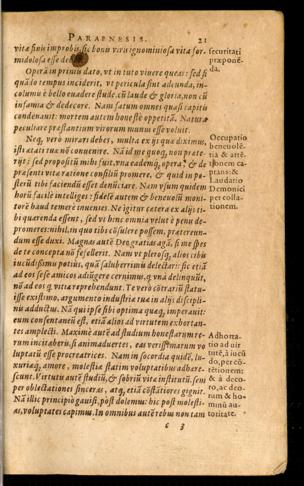 PARAENESIS. 21
vita finis improbis, sic bonis viris ignominiosa vita for-
midolosa esse debet.
securitati
præponē-
da.
Operā in primis dato, vt in tuto vivere queas: sed si
quādo tempus inciderit, vt pericula sint adeunda, in-
columē è bello evadere stude, cū laude & gloria, non cū
infamia & dedecore. Nam fatum omnes quasi capitis
condenavit: mortem autem honestè oppetitā. Natura
peculiare præstantium virorum munus esse voluit.
Neq, verò mirari debes, multa ex ijs quæ diximus,
isti ætati tuæ nō convenire. Nā id me quoq, non præte-
rijt: sed proposuti mihi fuit, vna eademq, opera, & de
præsenti vitæ ratione consiliū promere, & quid in po-
sterū tibi faciendū esset denūciare. Nam vsum quidem
horū facilè intelliges: fidelē autem & benevolū moni-
torē haud temerè invenies. Ne igitur cætera ex alijs ti-
bi quærenda essent, sed vt hinc omnia velut è penu de-
promeres: nihil, in quo tibi cōsulere possem, prætereun-
dum esse duxi.
Occupatio
benevolē-
tiæ & attē-
tionem ca-
ptans: &
Laudatio
Demonici
per colla-
tionem.
Magnas autē Deo gratias agā, si me spes
de te concepta nō fefellerit. Nam vt plerosq, alios cibis
iucūdissimis potius, quā saluberrimis delectari: sic etiā
ad eos sese amicos adiūgere cernimus, q vnā delinquūt,
nō ad eos q vitia reprehendunt. Te verò cōtrariū statu-
isse existimo, argumento industriæ tuæ in alijs discipli-
nis adductus. Nā qui ipse sibi optima quæq, imperavit:
eum consentaneū est, etiā alios ad virtutem exhortan-
tes amplecti. Maximè autē ad studium honestarum re-
rum incitaberis, si animadvertes, eas verissimarum vo
luptatū esse procreatrices. Nam in socordia quidē, lu-
xuriaq, amore, molestiæ statim voluptatibus adhære-
scunt. Virtutis autē studiū, & sobriū vitæ institutū, sem
per oblectationes sinceras, atq, etiā cōstātiores gignit.
Nā illic principiò gavisi, pōst dolemus: hîc post molesti-
as, voluptates capimus. In omnibus autē rebus non tam
Adhorta-
tio ad vir
tutē, à iucū
do, per cō-
tētionem:
& à deco-
ro, ac deo-
rum & ho-
minū au-
toritate.
c 3